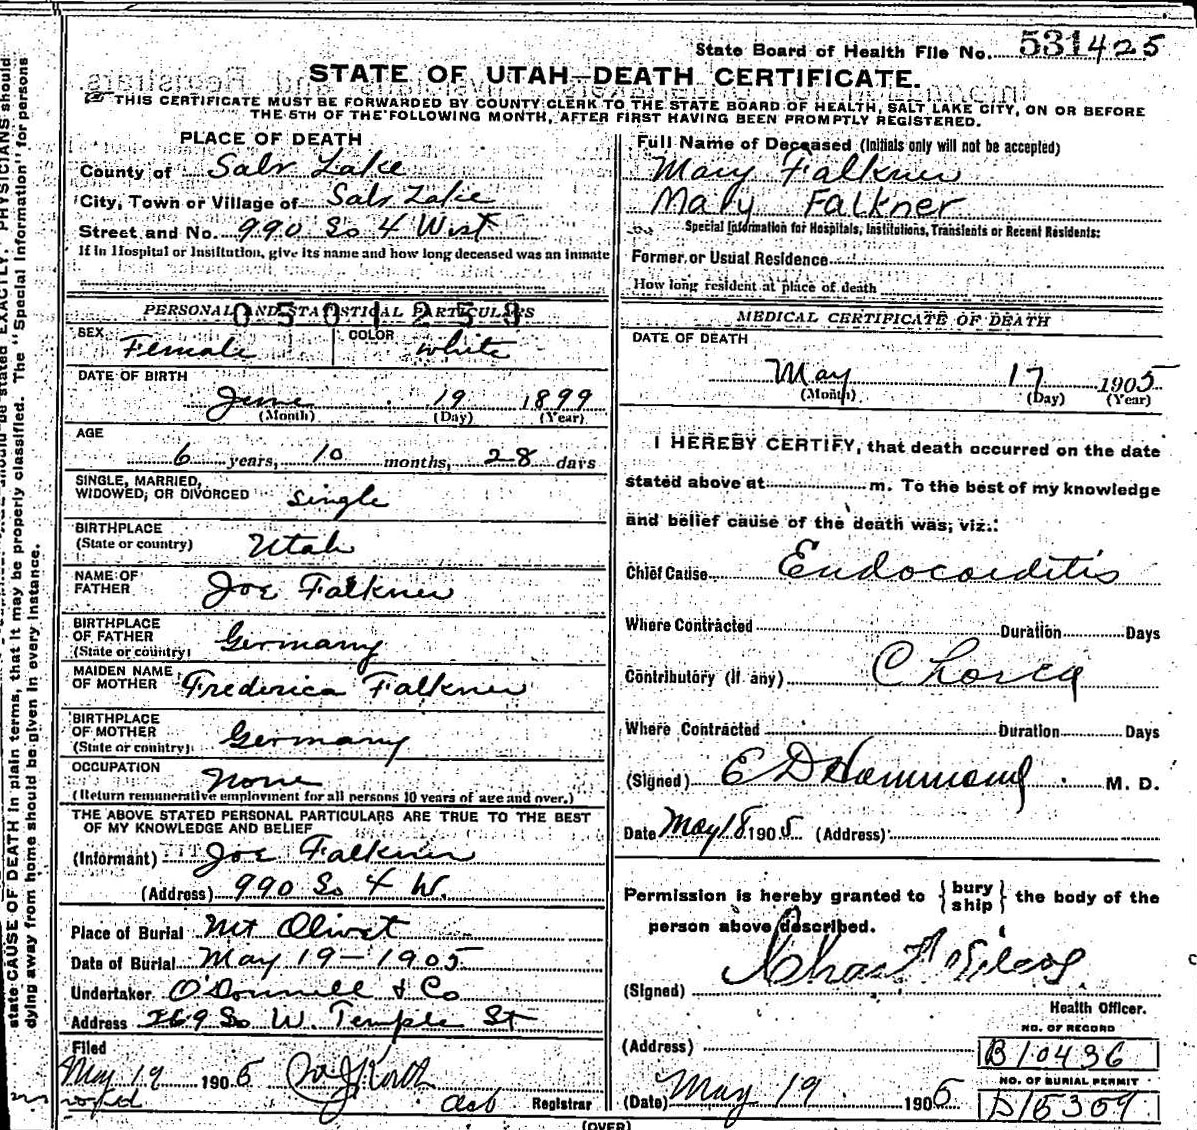 State Board of Health File No. 531425
STATE OF UTAH—DEATH CERTIFICATE.
THIS CERTIFICATE MUST BE FORWARDED BY COUNTY CLERK TO THE STATE BOARD OF HEALTH, SALT LAKE CITY, ON OR BEFORE
THE 5TH OF THE FOLLOWING MONTH, AFTER FIRST HAVING BEEN PROMPTLY REGISTERED.
PLACE OF DEATH
County of Salt Lake
City, Town or Village of Salt Lake
Street and No. 990 So 4 West
If in Hospital or Institution, give its name and how long deceased was an inmate
0501258
PERSONAL AND STATISTICAL PARTICULARS
SEX Female COLOR white
DATE OF BIRTH
June 19 1899
(Month) (Day) (Year)
AGE
6 years, 10 months, 28 days
SINGLE, MARRIED,
WIDOWED, OR DIVORCED single
BIRTHPLACE
(State or country) Utah
NAME OF
FATHER Joe Falkner
BIRTHPLACE
OF FATHER
(State or country) Germany
MAIDEN NAME
OF MOTHER Frederica Falkner
BIRTHPLACE
OF MOTHER
(State or country) Germany
OCCUPATION None
(Return remunerative employment for all persons 10 years of age and over.)
THE ABOVE STATED PERSONAL PARTICULARS ARE TRUE TO THE BEST
OF MY KNOWLEDGE AND BELIEF
(Informant) Joe Falkner
(Address) 990 So 4 W.
Place of Burial Mt Olivet
Date of Burial May 19-1905
Undertaker O'Donnell & Co
Address 269 So W. Temple St
Filed
May 19 1905
Registrar
Full Name of Deceased (Initials only will not be accepted)
Mary Falkner
Mary Falkner
Special Information for Hospitals, Institutions, Transients or Recent Residents:
Former or Usual Residence
How long resident at place of death
MEDICAL CERTIFICATE OF DEATH
DATE OF DEATH
May 17 1905
(Month) (Day) (Year)
I HEREBY CERTIFY, that death occurred on the date
stated above at m. To the best of my knowledge
and belief cause of the death was, viz.:
Chief Cause Endocarditis
Where Contracted Duration Days
Contributory (if any) Chorea
Where Contracted Duration Days
(Signed) E D Hammond M. D.
Date May 18 1905 (Address)
Permission is hereby granted to {bury
ship} the body of the
person above described.
(Signed)
Health Officer.
NO. OF RECORD
(Address) B10436
NO. OF BURIAL PERMIT
(Date) May 19 1905 D15309
(OVER)
state CAUSE OF DEATH in plain terms, that it may be properly classified. The "Special Information" for persons
dying away from home should be given in every instance.